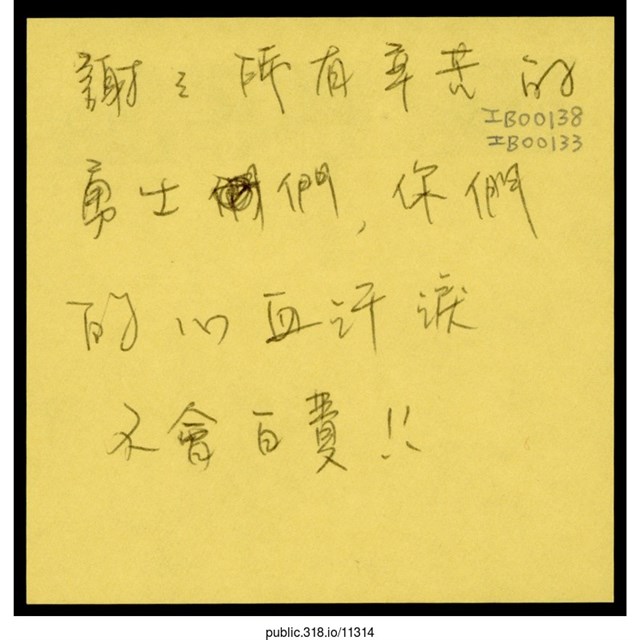 謝々所有辛苦的
IB00138
IB00133
勇士們,你們
的心血汗淚
不會白費!!
public.318.io/11314